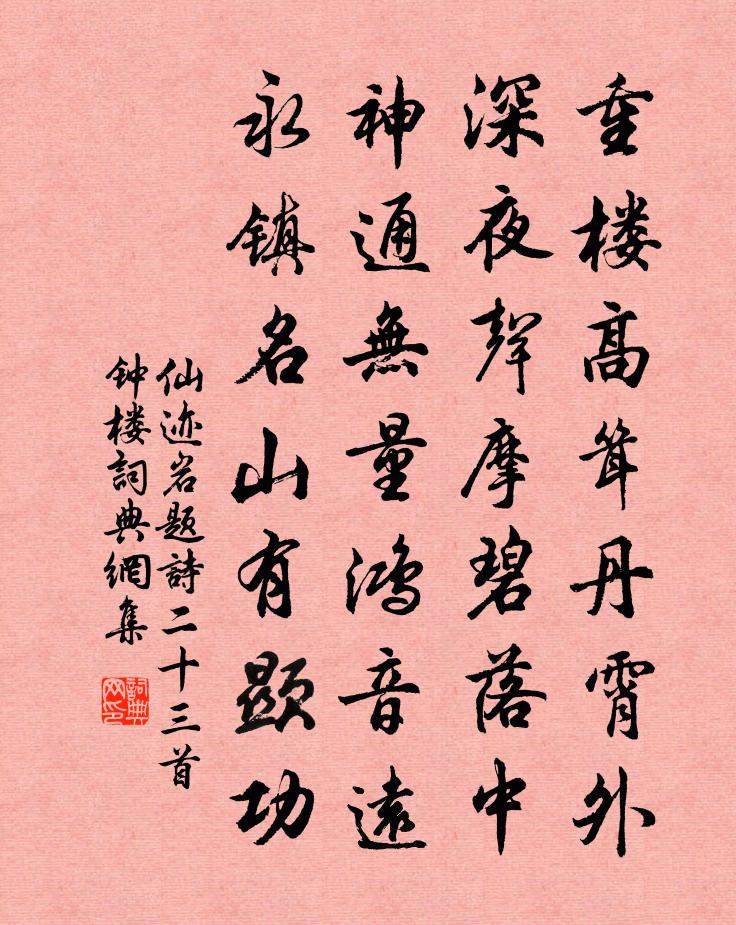 重楼高耸丹霄外
深夜聲摩碧落中
神通無量鴻音遠
永鎮名山有顯功
仙迹岩题詩二十三首
钟楼詞典網集
詞典网印